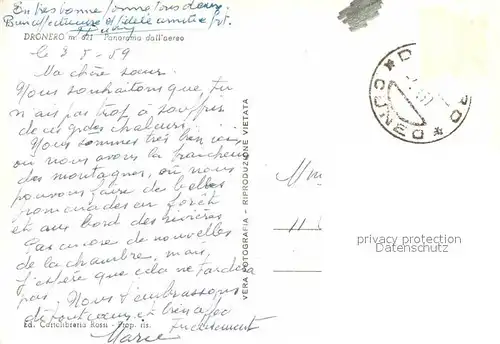 En très bonne forme tous deux.
Bien affectueuse et fidèle amitié
DRONERO m. 621 - Panorama dall'aereo
le 3 8 - 59
Ma chère sœur.
Nous souhaitons que, tu
n'aies pas trop à souffrir
de ces grdes chaleurs.
Nous sommes très bien ici,
où nous avons la fraicheur
des montagnes, où nous
pouvons faire de belles
promenades en forêt
et au bord des rivières
Pas encore de nouvelles
de la chambre, mais
j'espère que cela ne tardera
pas. Nous t'embrassons
de tout cœur et bien affec
tueusement
Marie
Ed. Cartolibraria Rossi - Prop. ris.
VERA FOTOGRAFIA - RIPRODUZIONE VIETATA
CUNEO
M
11
privacy protection
Datenschutz